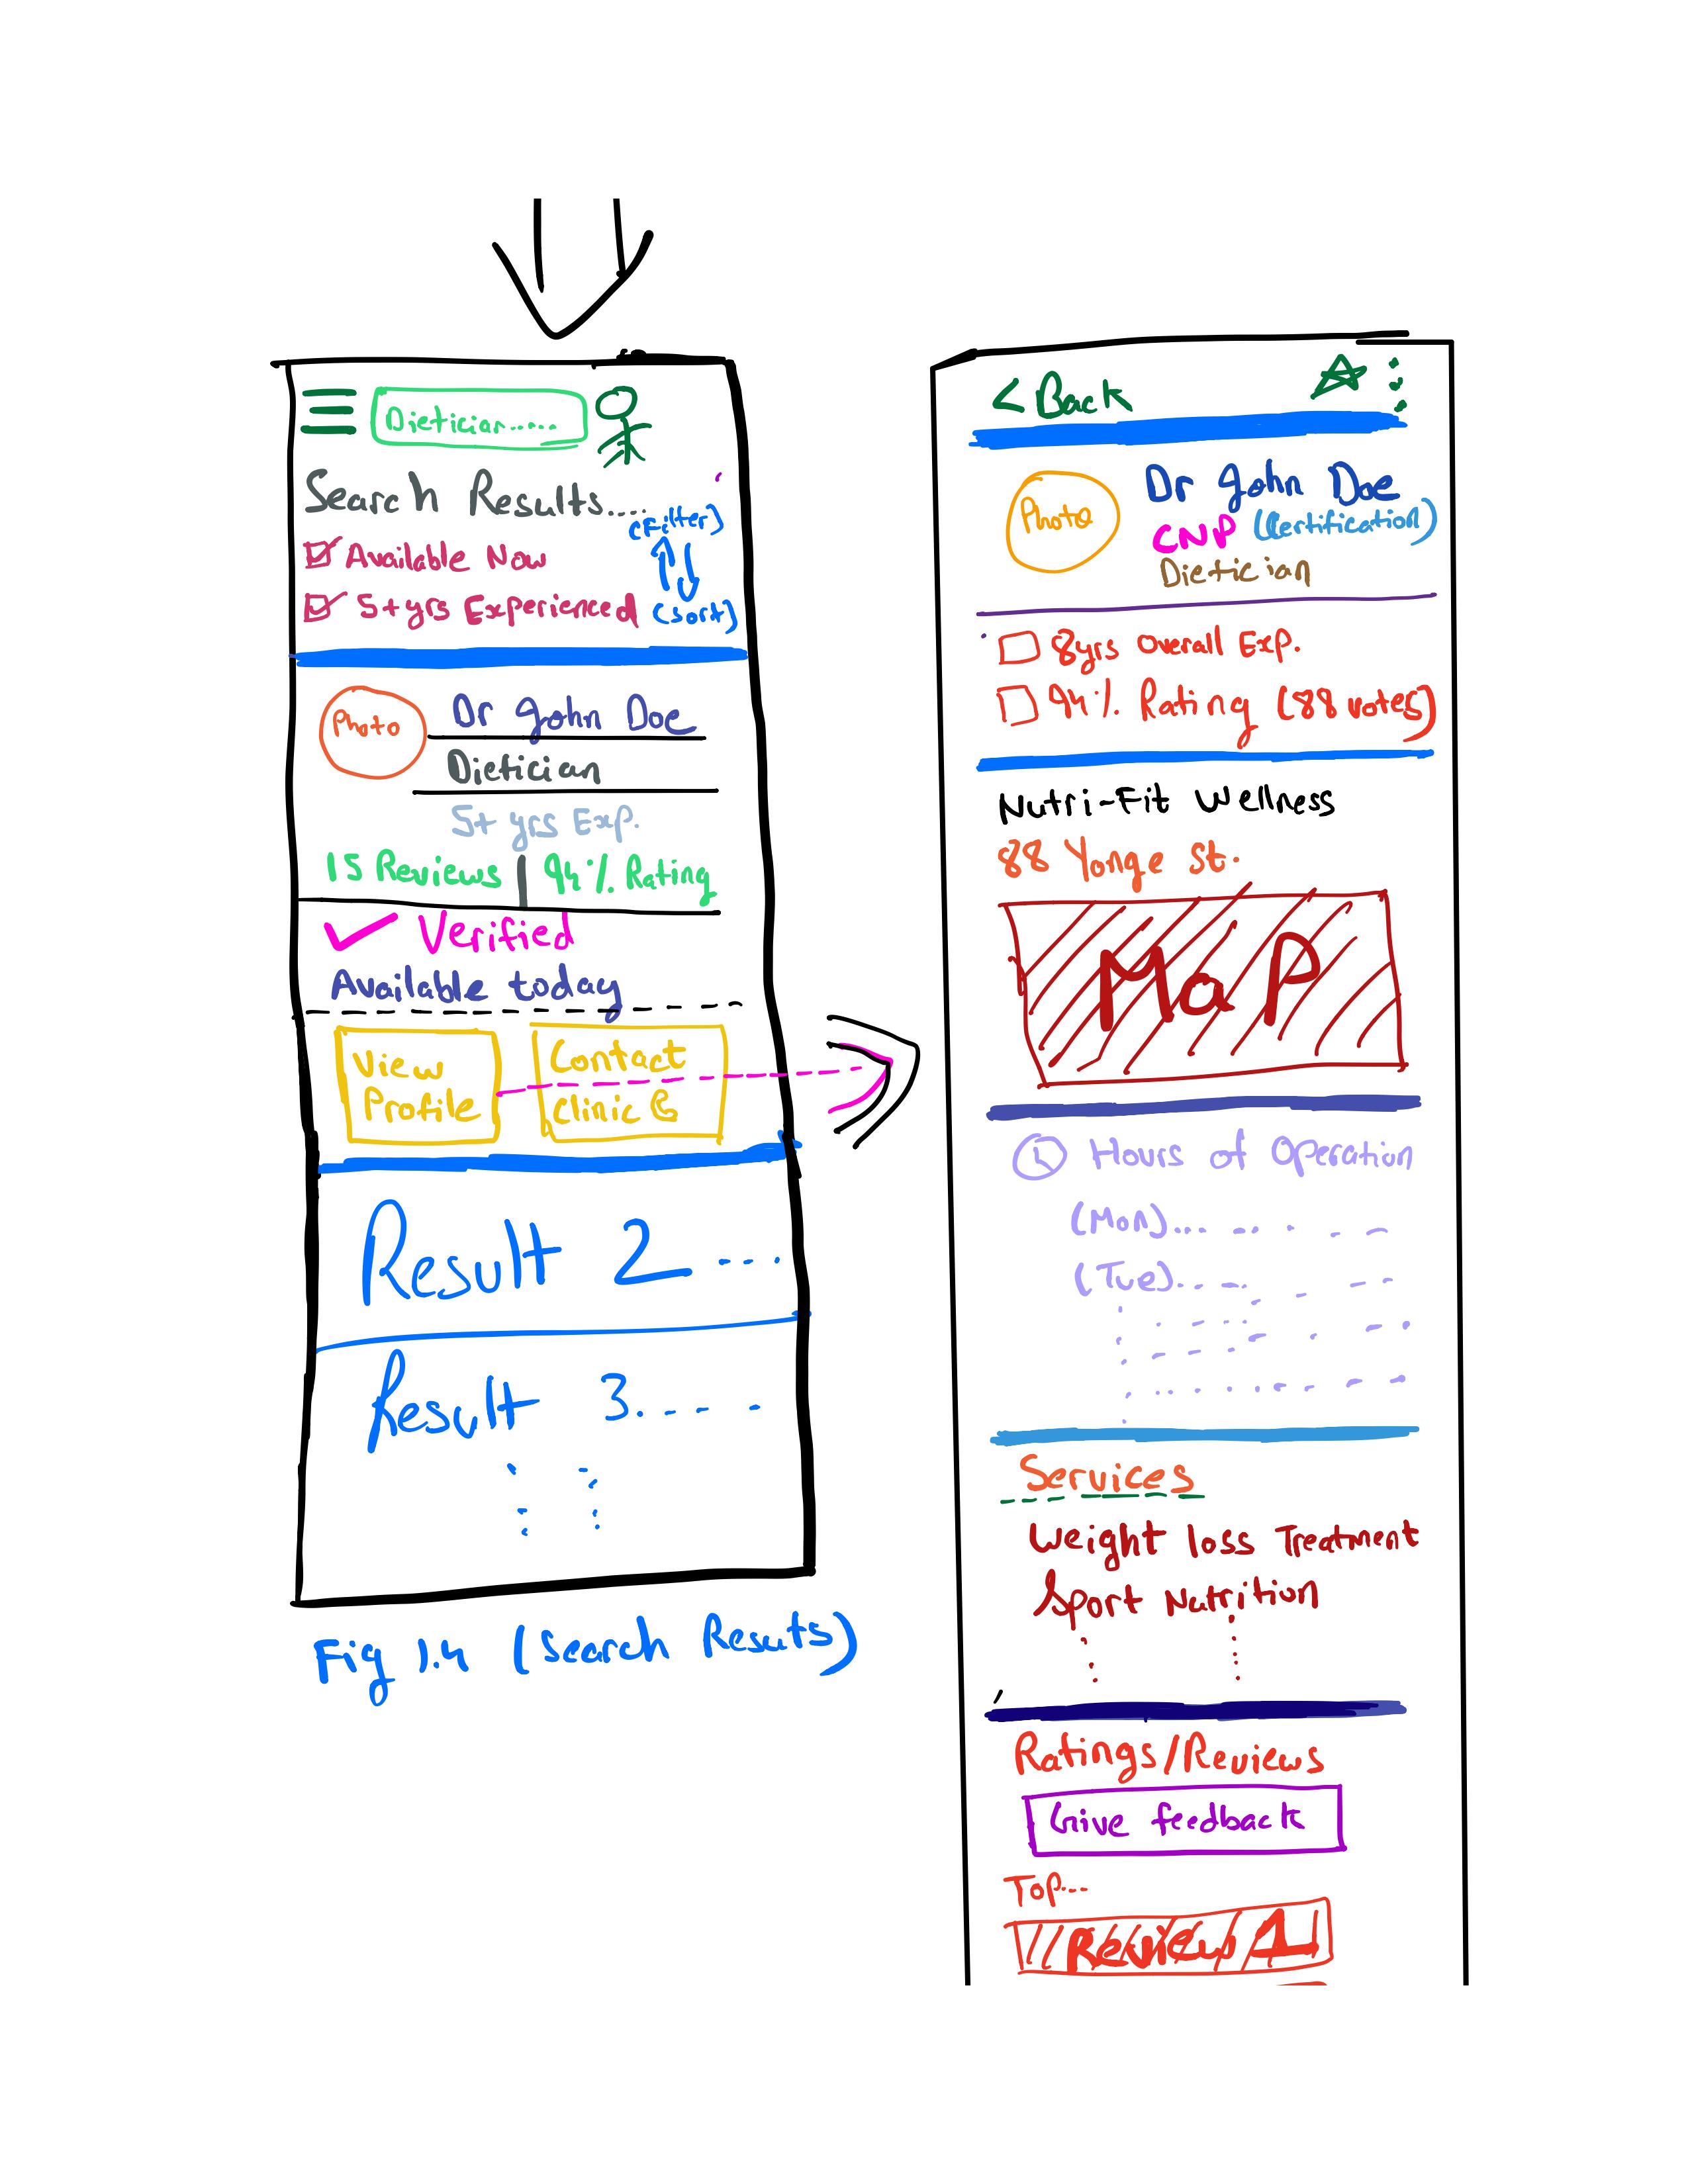 Dietician.....
Search Results....
(Filter)
Available Now
5+yrs Experienced
(sort)
Photo
Dr John Doe
Dietician
5+ yrs Exp.
15 Reviews | 94% Rating
Verified
Available today
View
Profile
Contact
Clinic
Result 2 ....
Result 3. ...
Fig 1.4 (Search Resuts)
< Back
Photo
Dr John Doe
CNP (Certification)
Dietician
8yrs Overall Exp.
94% Rating (88 votes)
Nutri-Fit Wellness
88 Yonge St.
MaP
Hours of Operation
(Mon)...
(Tue)...
Services
Weight loss Treatment
Sport Nutrition
Ratings/Reviews
Give feedback
Top...
Review 1